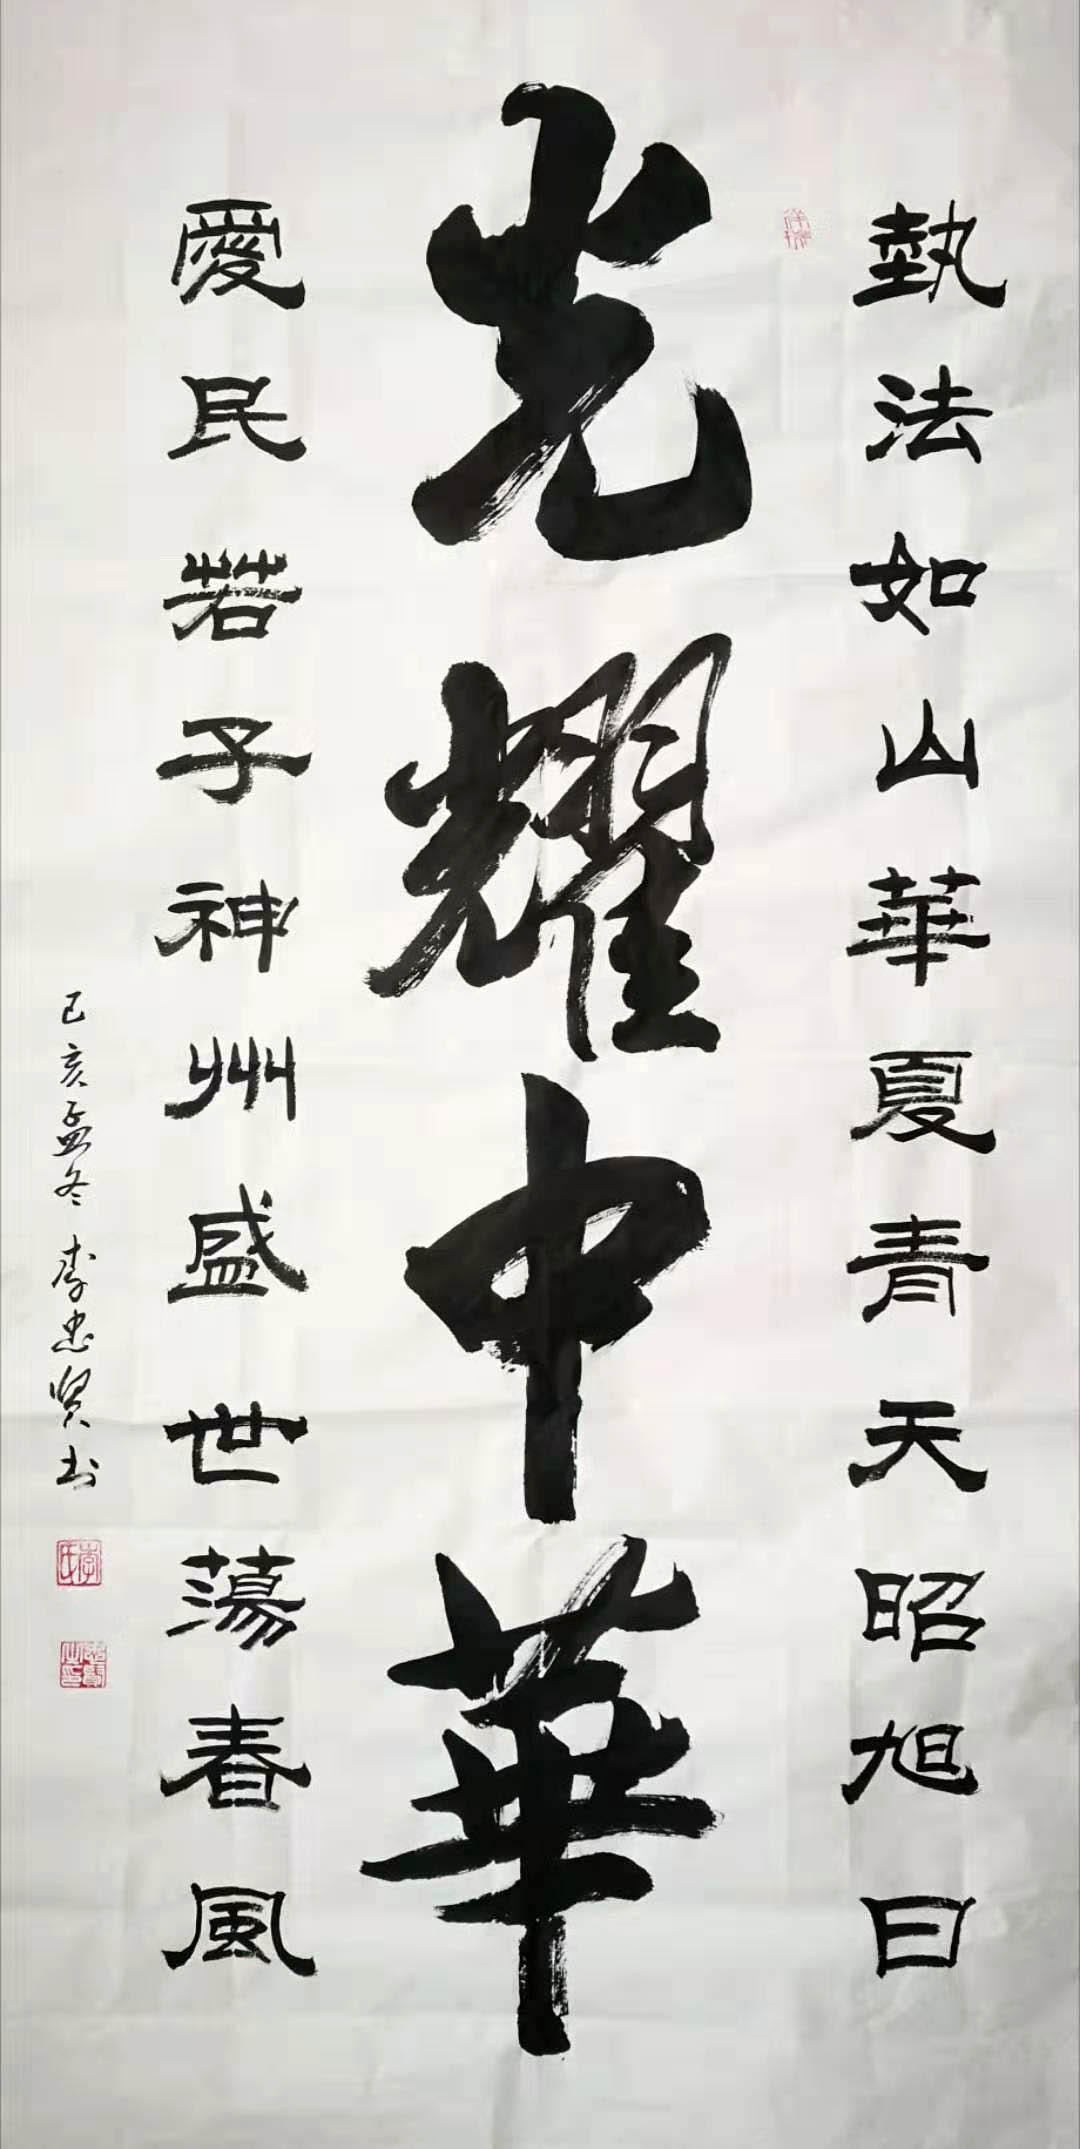 執法如山華夏青天昭旭日
光耀中華
愛民若子神州盛世蕩春風
己亥孟冬 李忠贤书
李氏